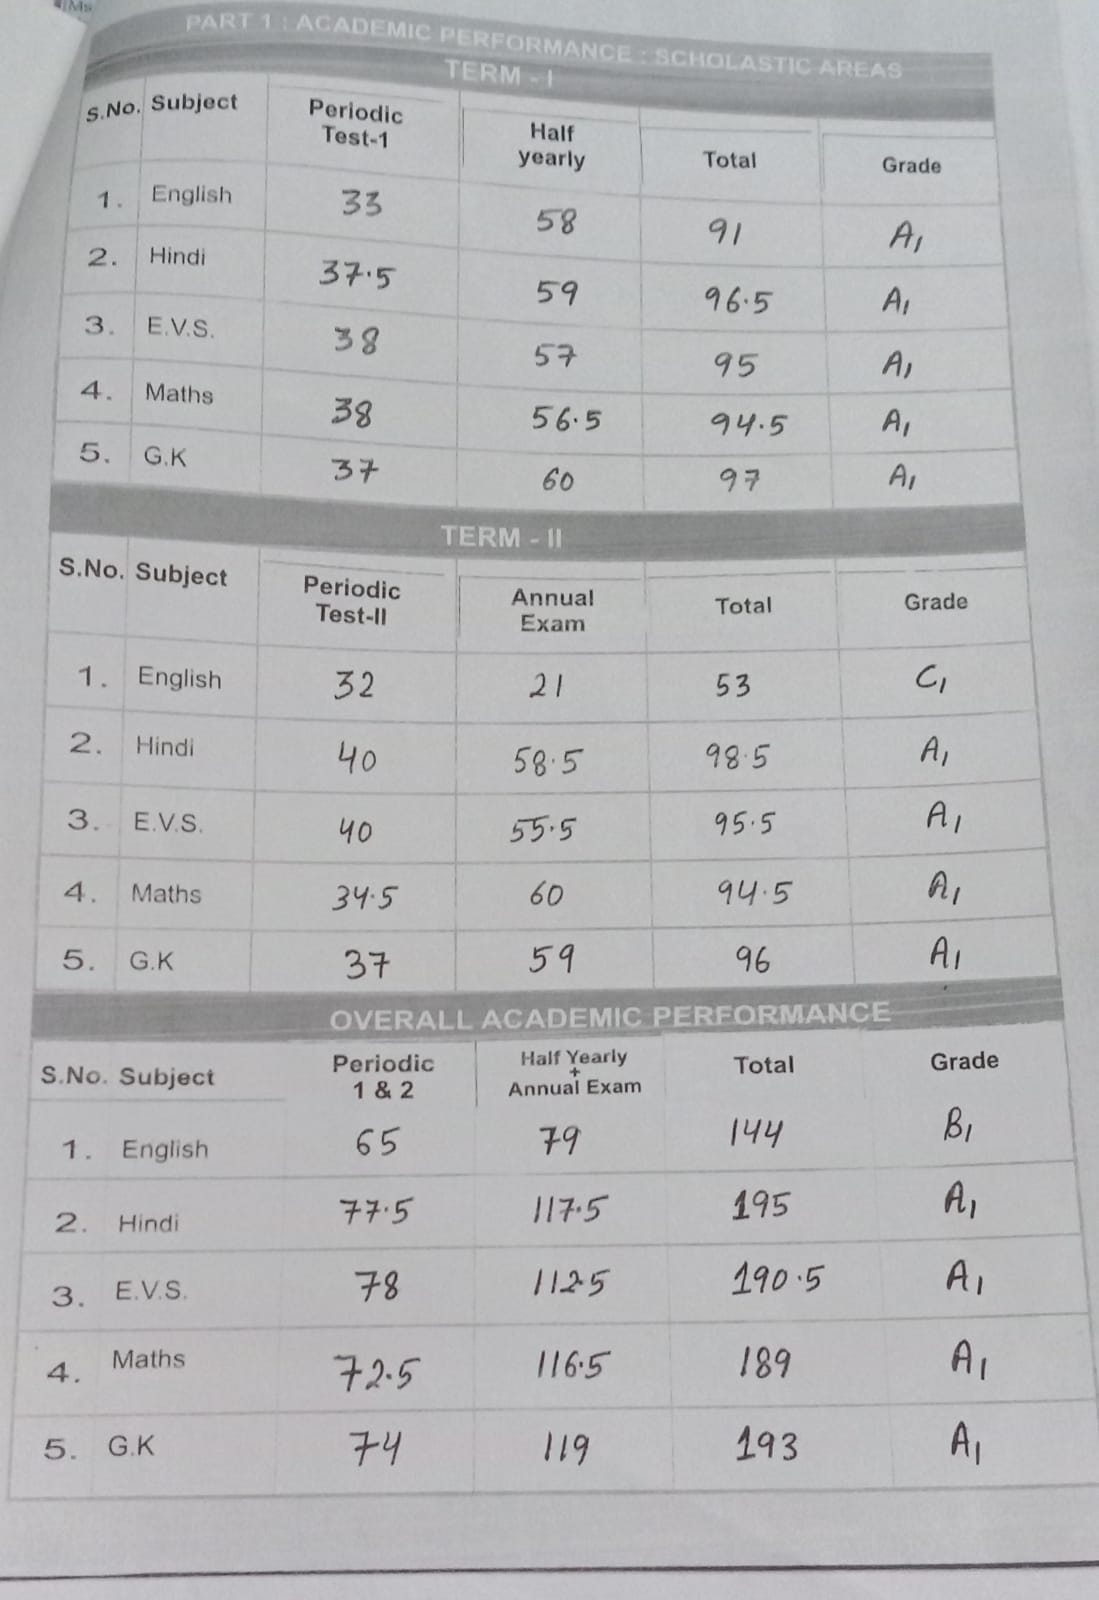 Ms
PART 1 : ACADEMIC PERFORMANCE : SCHOLASTIC AREAS
TERM - I
S.No. Subject Periodic Test-1 Half yearly Total Grade
1. English 33 58 91 A1
2. Hindi 37.5 59 96.5 A1
3. E.V.S. 38 57 95 A1
4. Maths 38 56.5 94.5 A1
5. G.K 37 60 97 A1
TERM - II
S.No. Subject Periodic Test-II Annual Exam Total Grade
1. English 32 21 53 C1
2. Hindi 40 58.5 98.5 A1
3. E.V.S. 40 55.5 95.5 A1
4. Maths 34.5 60 94.5 A1
5. G.K 37 59 96 A1
OVERALL ACADEMIC PERFORMANCE
S.No. Subject Periodic 1 & 2 Half Yearly + Annual Exam Total Grade
1. English 65 79 144 B1
2. Hindi 77.5 117.5 195 A1
3. E.V.S. 78 112.5 190.5 A1
4. Maths 72.5 116.5 189 A1
5. G.K 74 119 193 A1